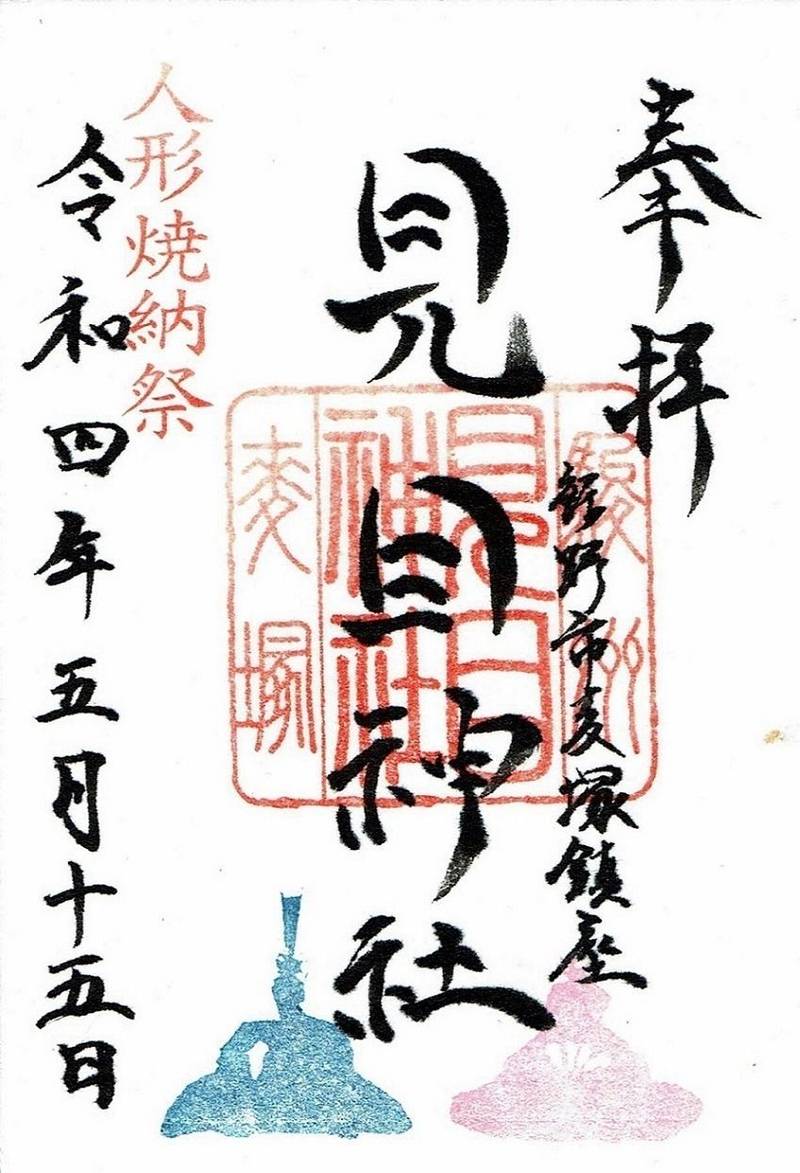 奉拝
裾野市麦塚鎮座
見目神社
駿州
見目
神社
麦塚
人形焼納祭
令和四年五月十五日